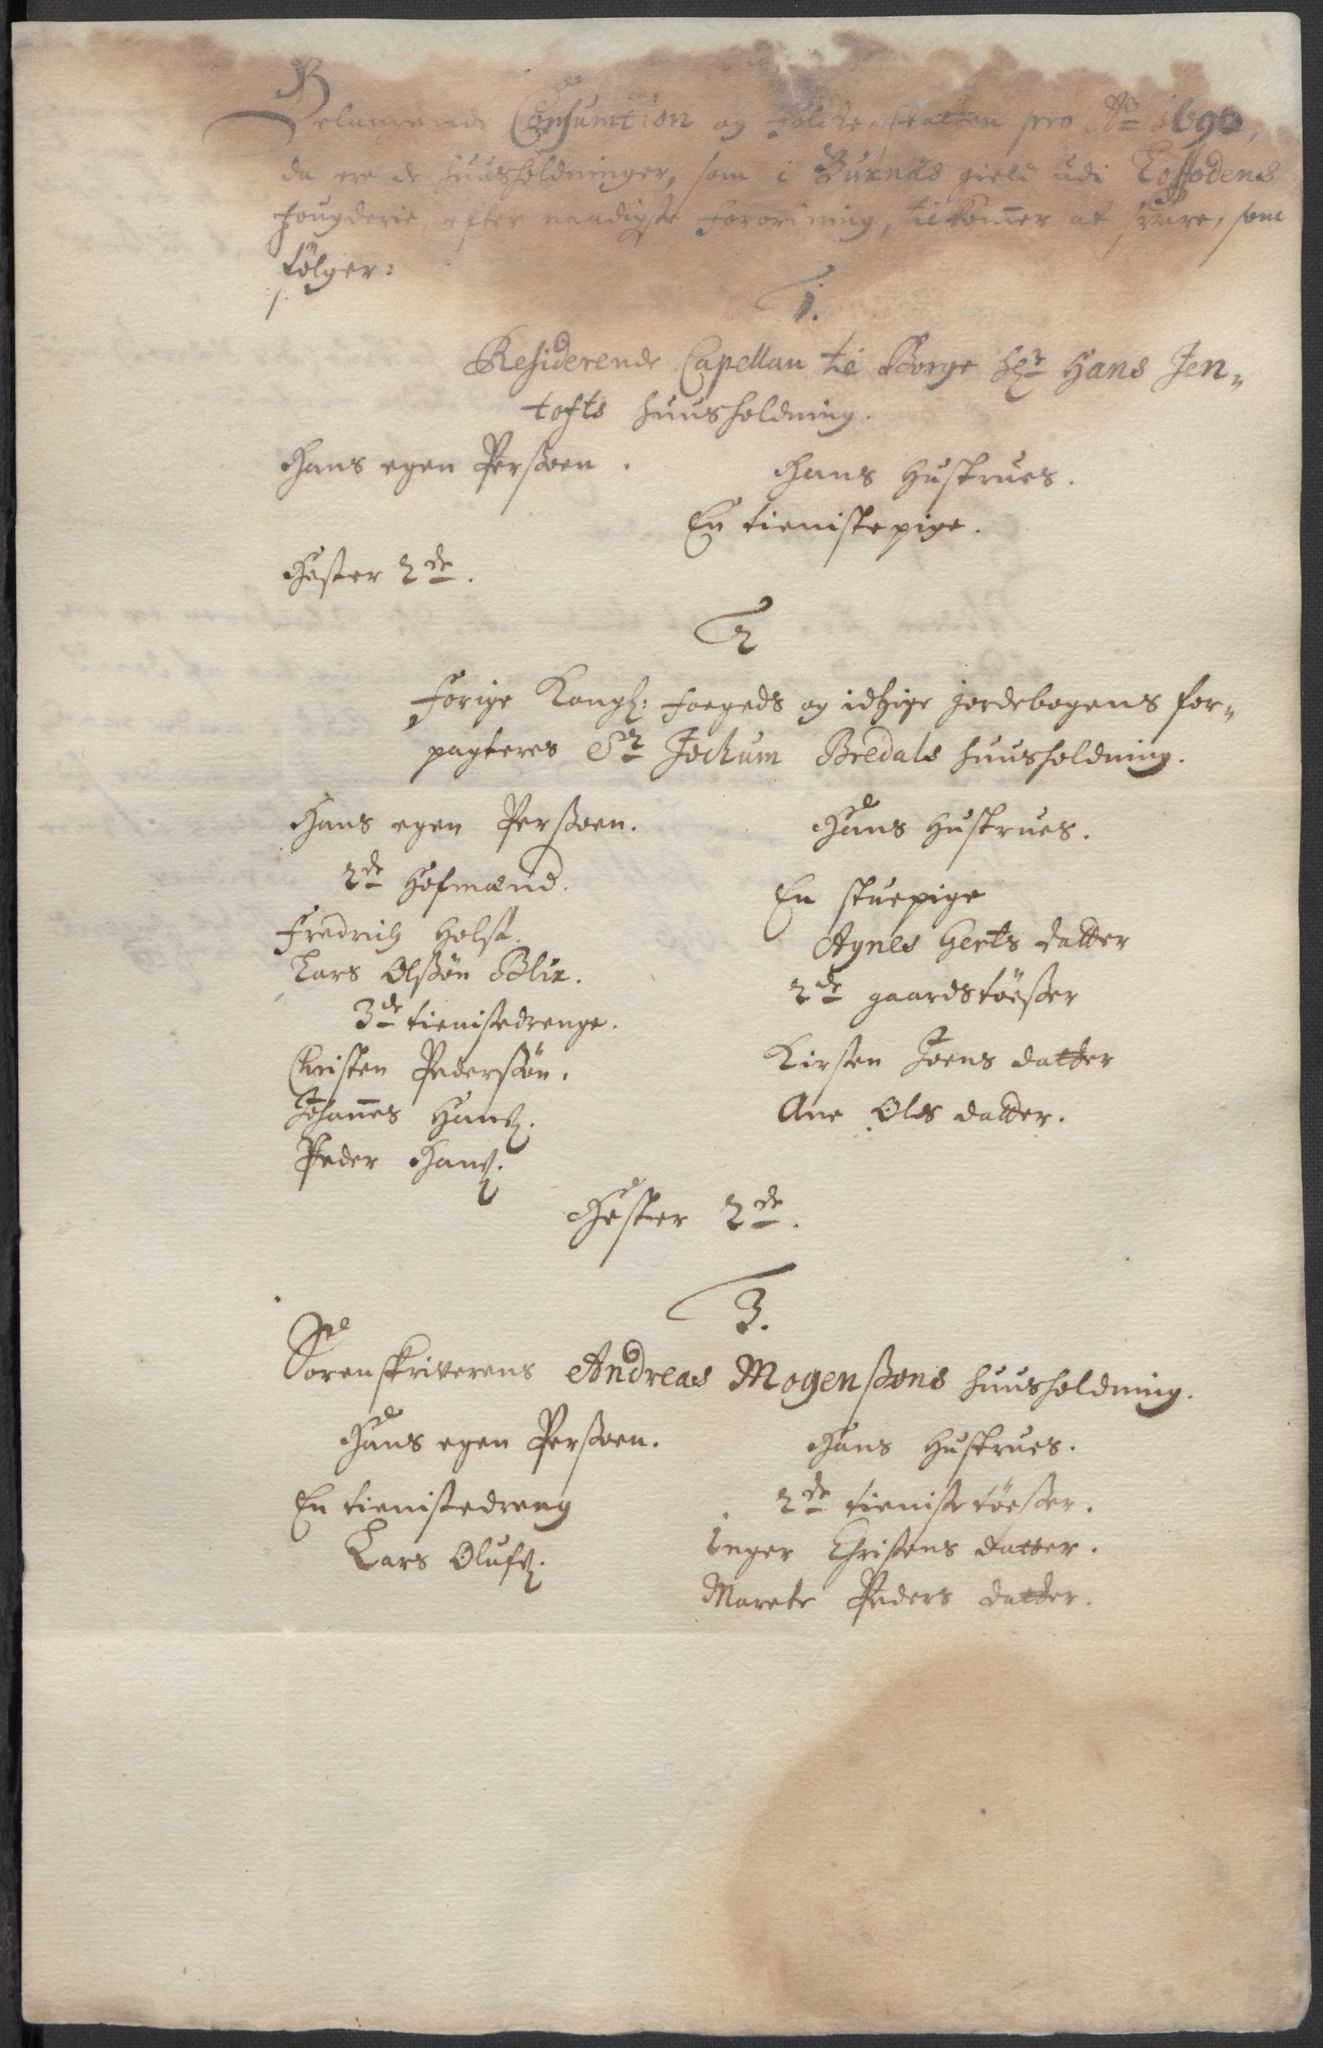 Belangende Consumtion og Folcke skatten pro Ao 1690,
da ere de huusholdninger, som i Buxnæs gield udi Loffodens
fougderie efter naadigste Forordning, tilkom̅er at svare, som
følger:
1.
Residerende Capellan til Borge Hr Hans Jen„
tofts huusholdning.
Hans egen Persoen.
Hans Hustrues.
En tienistepige.
Hester 2de.
2
Forige Kongl: Foegeds og idtzige jordebogens for„
pagteres Sr Jochum Bredals huusholdning.
Hans egen Persoen.
Hans Hustrues.
2de Hofmænd.
En stuepige
Fredrich Holst.
Agnes Gerts datter
Lars Olssøn Blix.
2de gaardstøesser
3de tienistedrenge.
Kirsten Joens datter
Christen Pederssøn.
Ane Olds datter.
Johan̅es Hans:
Peder Hans:
Hester 2de.
3.
Sorenskriverens Andreas Mogenssøns huusholdning.
Hans egen Persoen.
Hans Hustrues.
En tienistedreng
2de tieniste tøesser.
Lars Olufs:
Inger Christens datter.
Marete Peders datter.